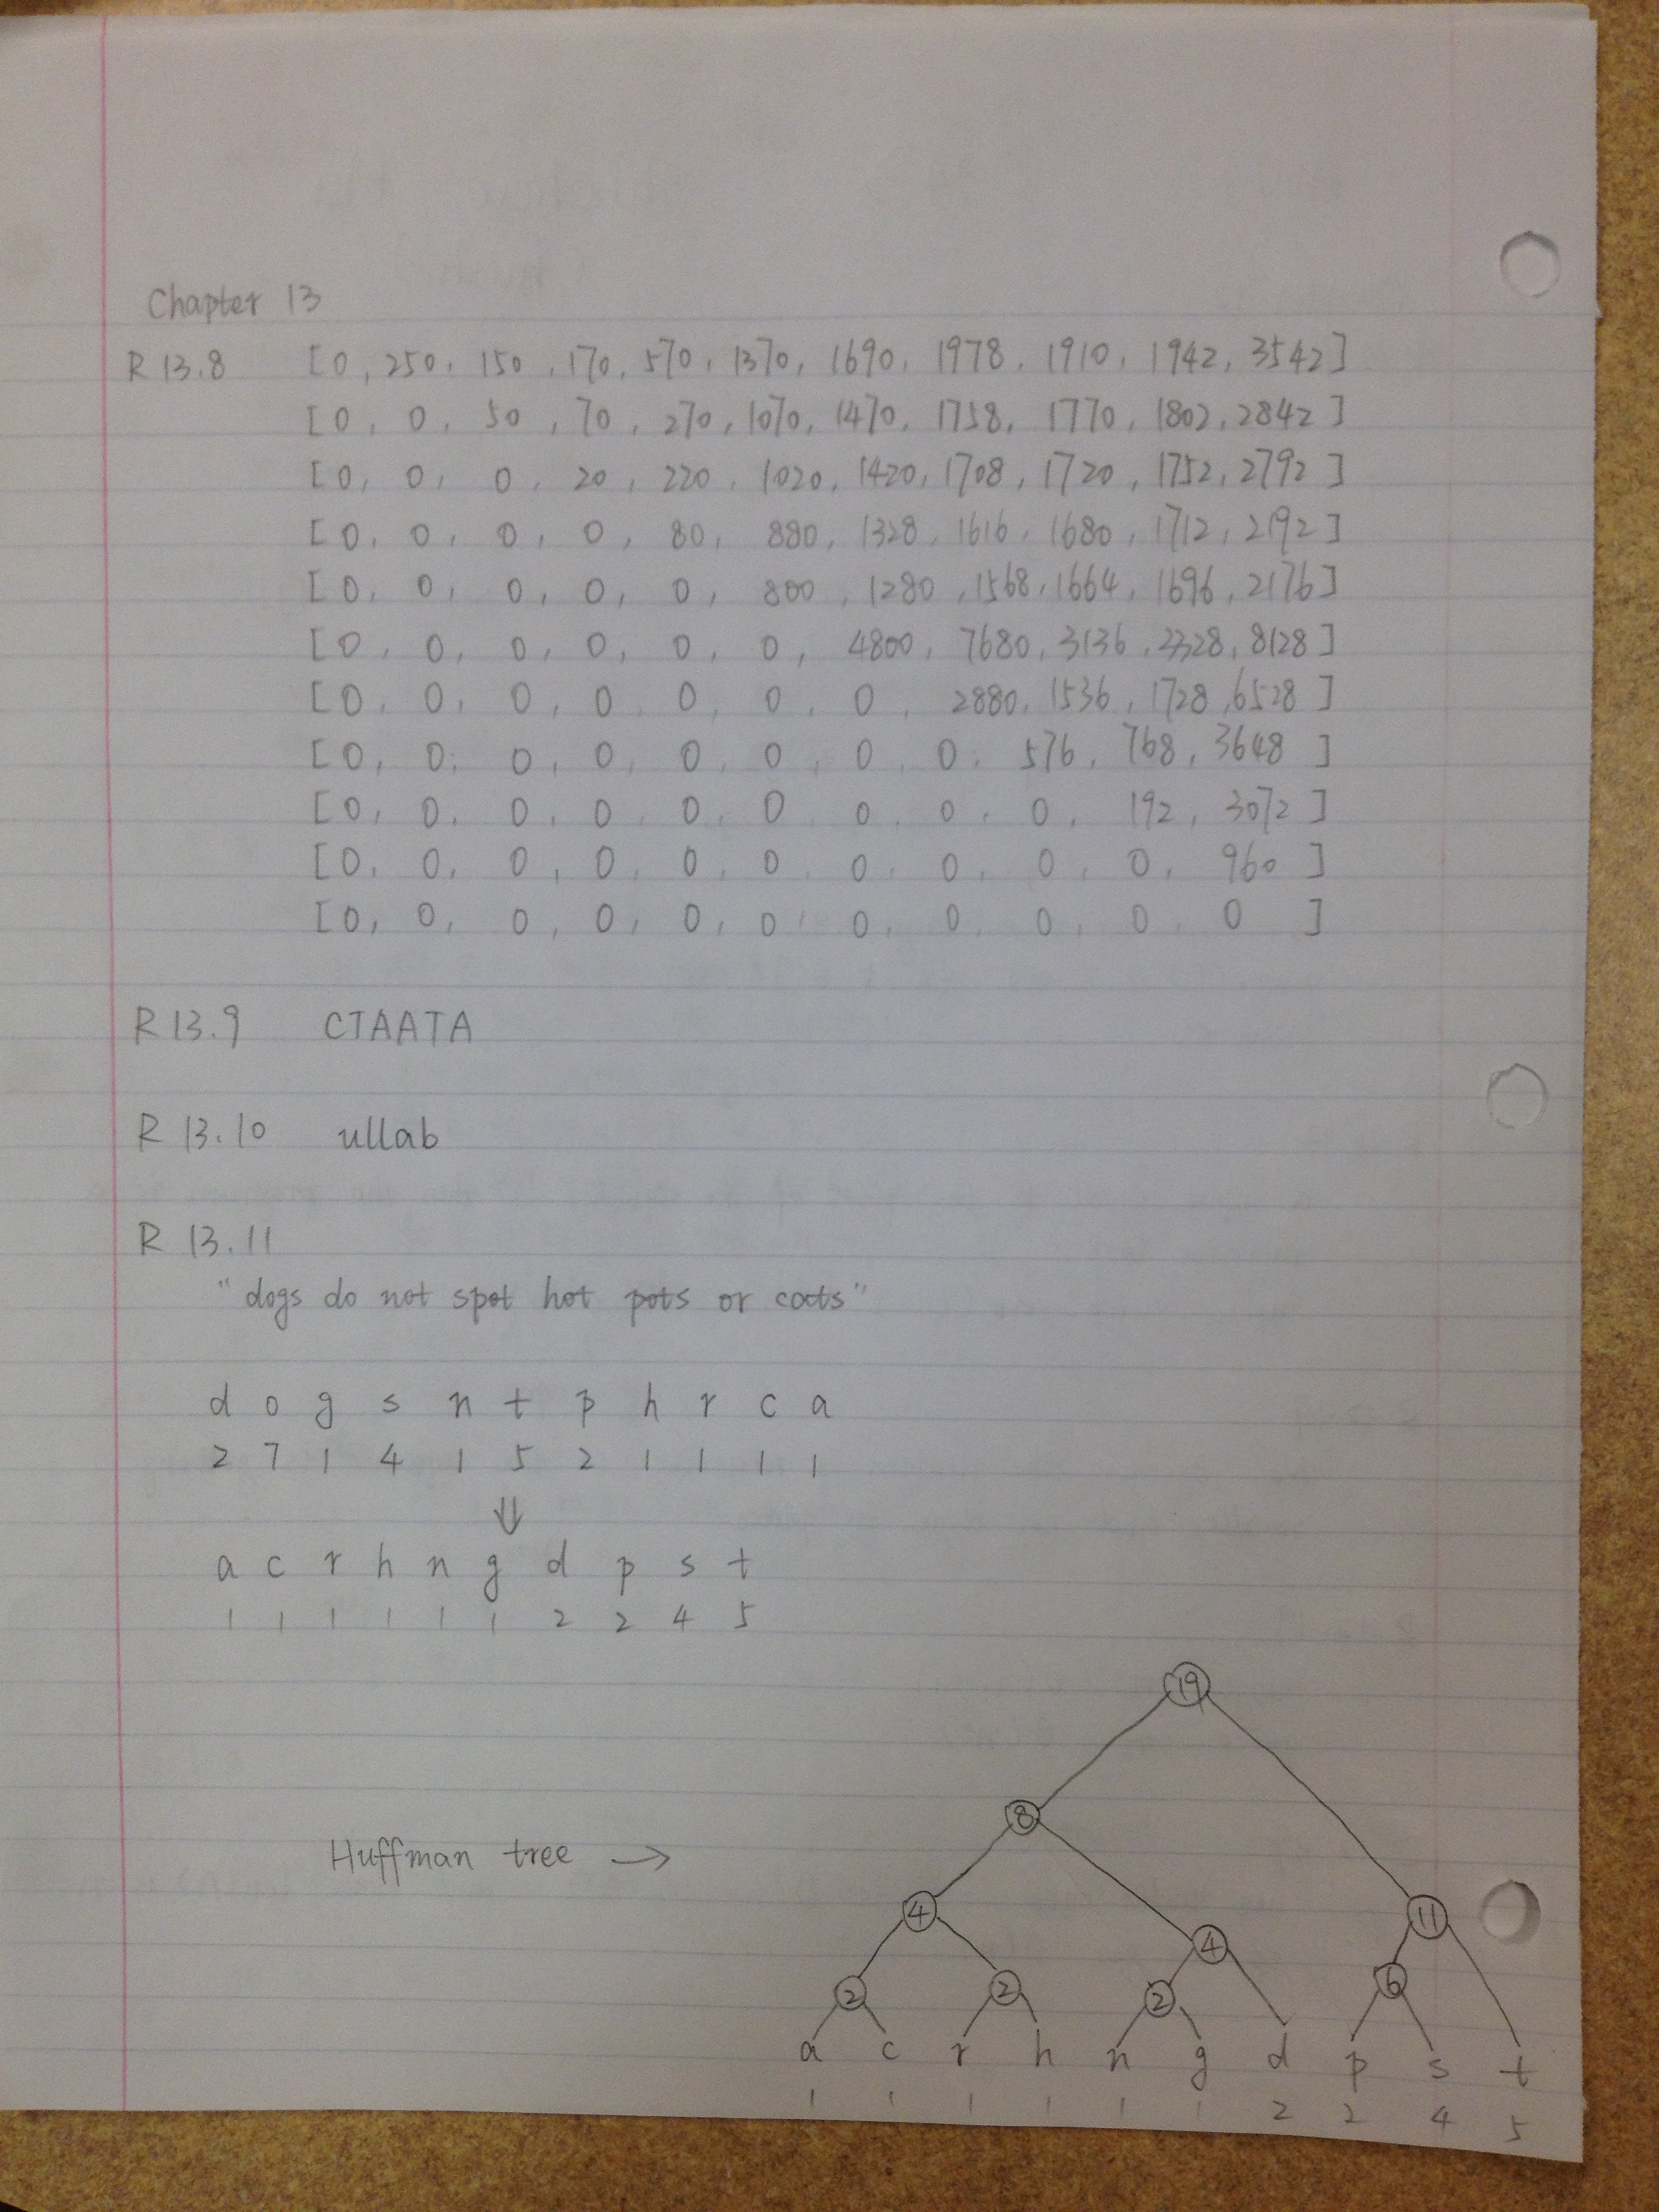 Chapter 13
R 13.8 [0, 250, 150, 170, 570, 1370, 1690, 1978, 1910, 1942, 3542]
[0, 0, 50, 70, 270, 1070, 1470, 1758, 1770, 1802, 2842]
[0, 0, 0, 20, 220, 1020, 1420, 1708, 1720, 1752, 2792]
[0, 0, 0, 0, 80, 880, 1328, 1616, 1680, 1712, 2192]
[0, 0, 0, 0, 0, 800, 1280, 1568, 1664, 1696, 2176]
[0, 0, 0, 0, 0, 0, 4800, 7680, 3136, 3328, 8128]
[0, 0, 0, 0, 0, 0, 0, 2880, 1536, 1728, 6528]
[0, 0, 0, 0, 0, 0, 0, 0, 576, 768, 3648]
[0, 0, 0, 0, 0, 0, 0, 0, 0, 192, 3072]
[0, 0, 0, 0, 0, 0, 0, 0, 0, 0, 960]
[0, 0, 0, 0, 0, 0, 0, 0, 0, 0, 0]
R 13.9 CTAATA
R 13.10 ullab
R 13.11
"dogs do not spot hot pots or cats"
d o g s n t p h r c a
2 7 1 4 1 5 2 1 1 1 1
⇓
a c r h n g d p s t
1 1 1 1 1 1 2 2 4 5
19
8
Huffman tree →
4 11
4
2 2 2 6
a c r h n g d p s t
1 1 1 1 1 1 2 2 4 5